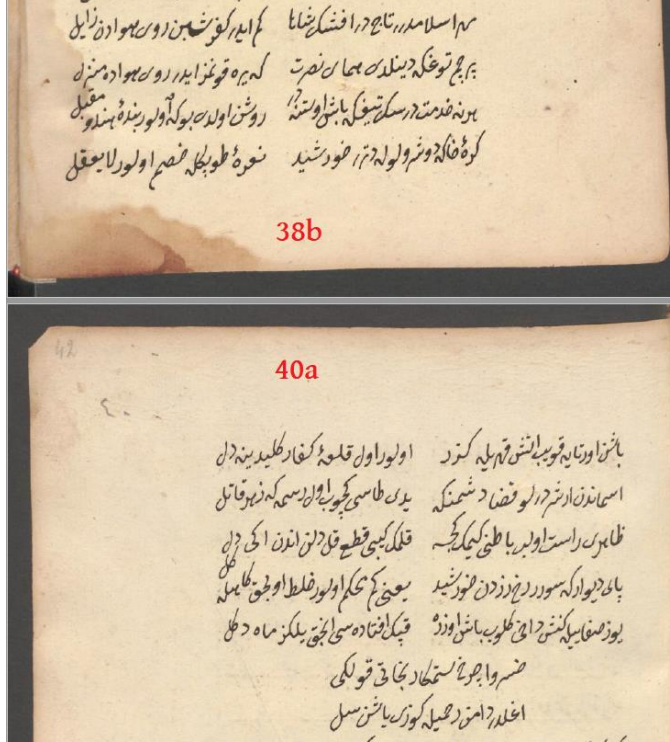 سر اسلامدر تاج در افشك شاها کم ایدر کفر شبن روی هوادن زایل
پرچم توغکه دینلدی همای نصرت که یره قونمز ایدر روی هواده منزل
هر نه خدمت درسک تیغکه باش اوستنه در روشن اولدی بو که اولور بندهٔ هندو مقبل
کرهٔ خاکه دوشر ولوله دتر خورشید نعرهٔ طوپکله خصم اولور لا یعقل
38b
42
40a
٤٠
باشن اورتایه قویب آتش قهریله کزر اولور اول قلعهٔ کفار کلیدینه دل
اسماندن ارشدرلر قضا دشمنکه یدی طاسی کچوب اول رسمه که زهر قاتل
ظاهری راست اولوب باطنی کیمک کجسه قلمک کیبی قطع قل دلن اندن اکی دل
پای دیوارکه سورر رخ زردن خورشید یعنی کم محکم اولور خلط اولجق کاهله کل
یوز صفاسیله کنش داخی کلوب باش اوردی قپک افتاده سی انجق یلکز ماه دکل
خسروا چرخ ستمکار نجاتی قولکی
اغلدر دامن رحمیله کوزی یاشن سل